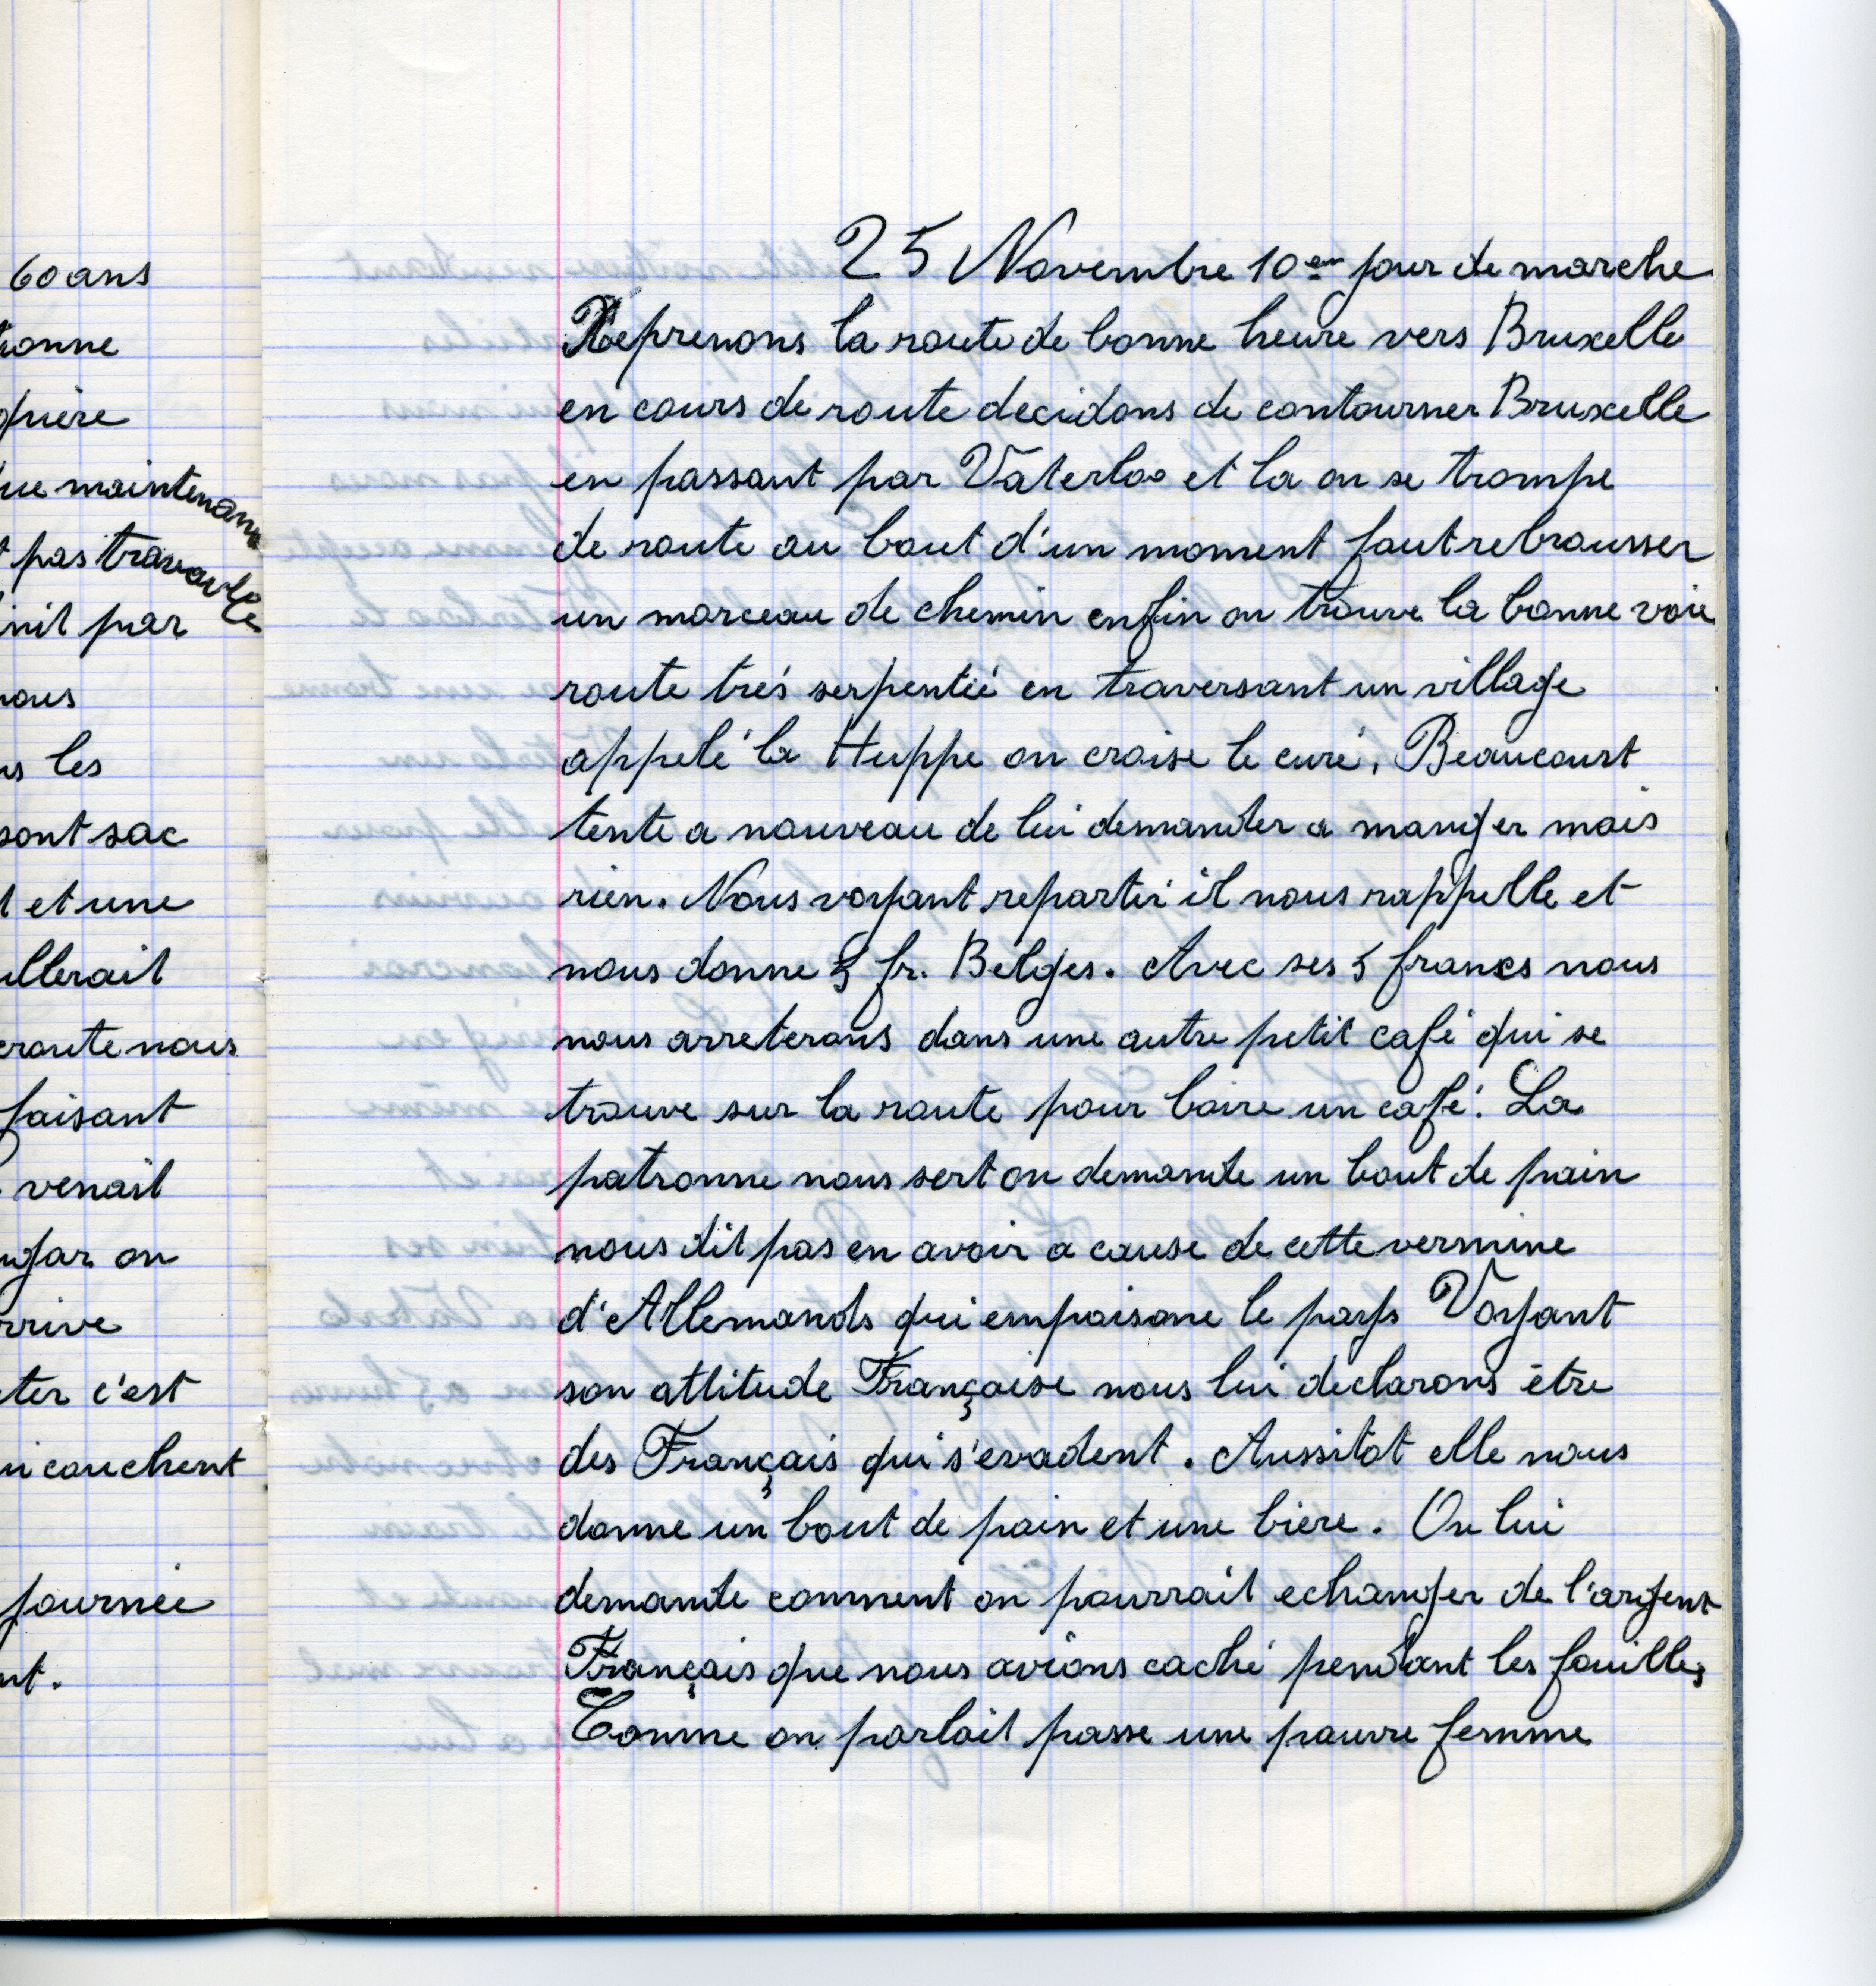 60 ans
maintenant
pas travaille
par
les
sont sac
et une
faisant
venait
on
c'est
couchent
journée
25 Novembre 10em jour de marche
Reprenons la route de bonne heure vers Bruxelle
en cours de route decidons de contourner Bruxelle
en passant par Vaterloo et la on se trompe
de route au bout d'un moment faut rebrousser
un morceau de chemin enfin on trouve la bonne voie
route trés serpentée en traversant un village
appelé la Huppe on croise le curé, Beaucourt
tente a nouveau de lui demander a manger mais
rien. Nous voyant repartir il nous rappelle et
nous donne 5 fr. Belges. Avec ses 5 francs nous
nous arreterons dans une autre petit café qui se
trouve sur la route pour boire un café. La
patronne nous sert on demande un bout de pain
nous dit pas en avoir a cause de cette vermine
d'Allemands qui empoisone le pays Voyant
son attitude Française nous lui declarons être
des Français qui s'evadent. Aussitot elle nous
donne un bout de pain et une biere. On lui
demande comment on pourrait echanger de l'argent
Français que nous avions caché pendant les fouilles
Comme on parlait passe une pauvre femme